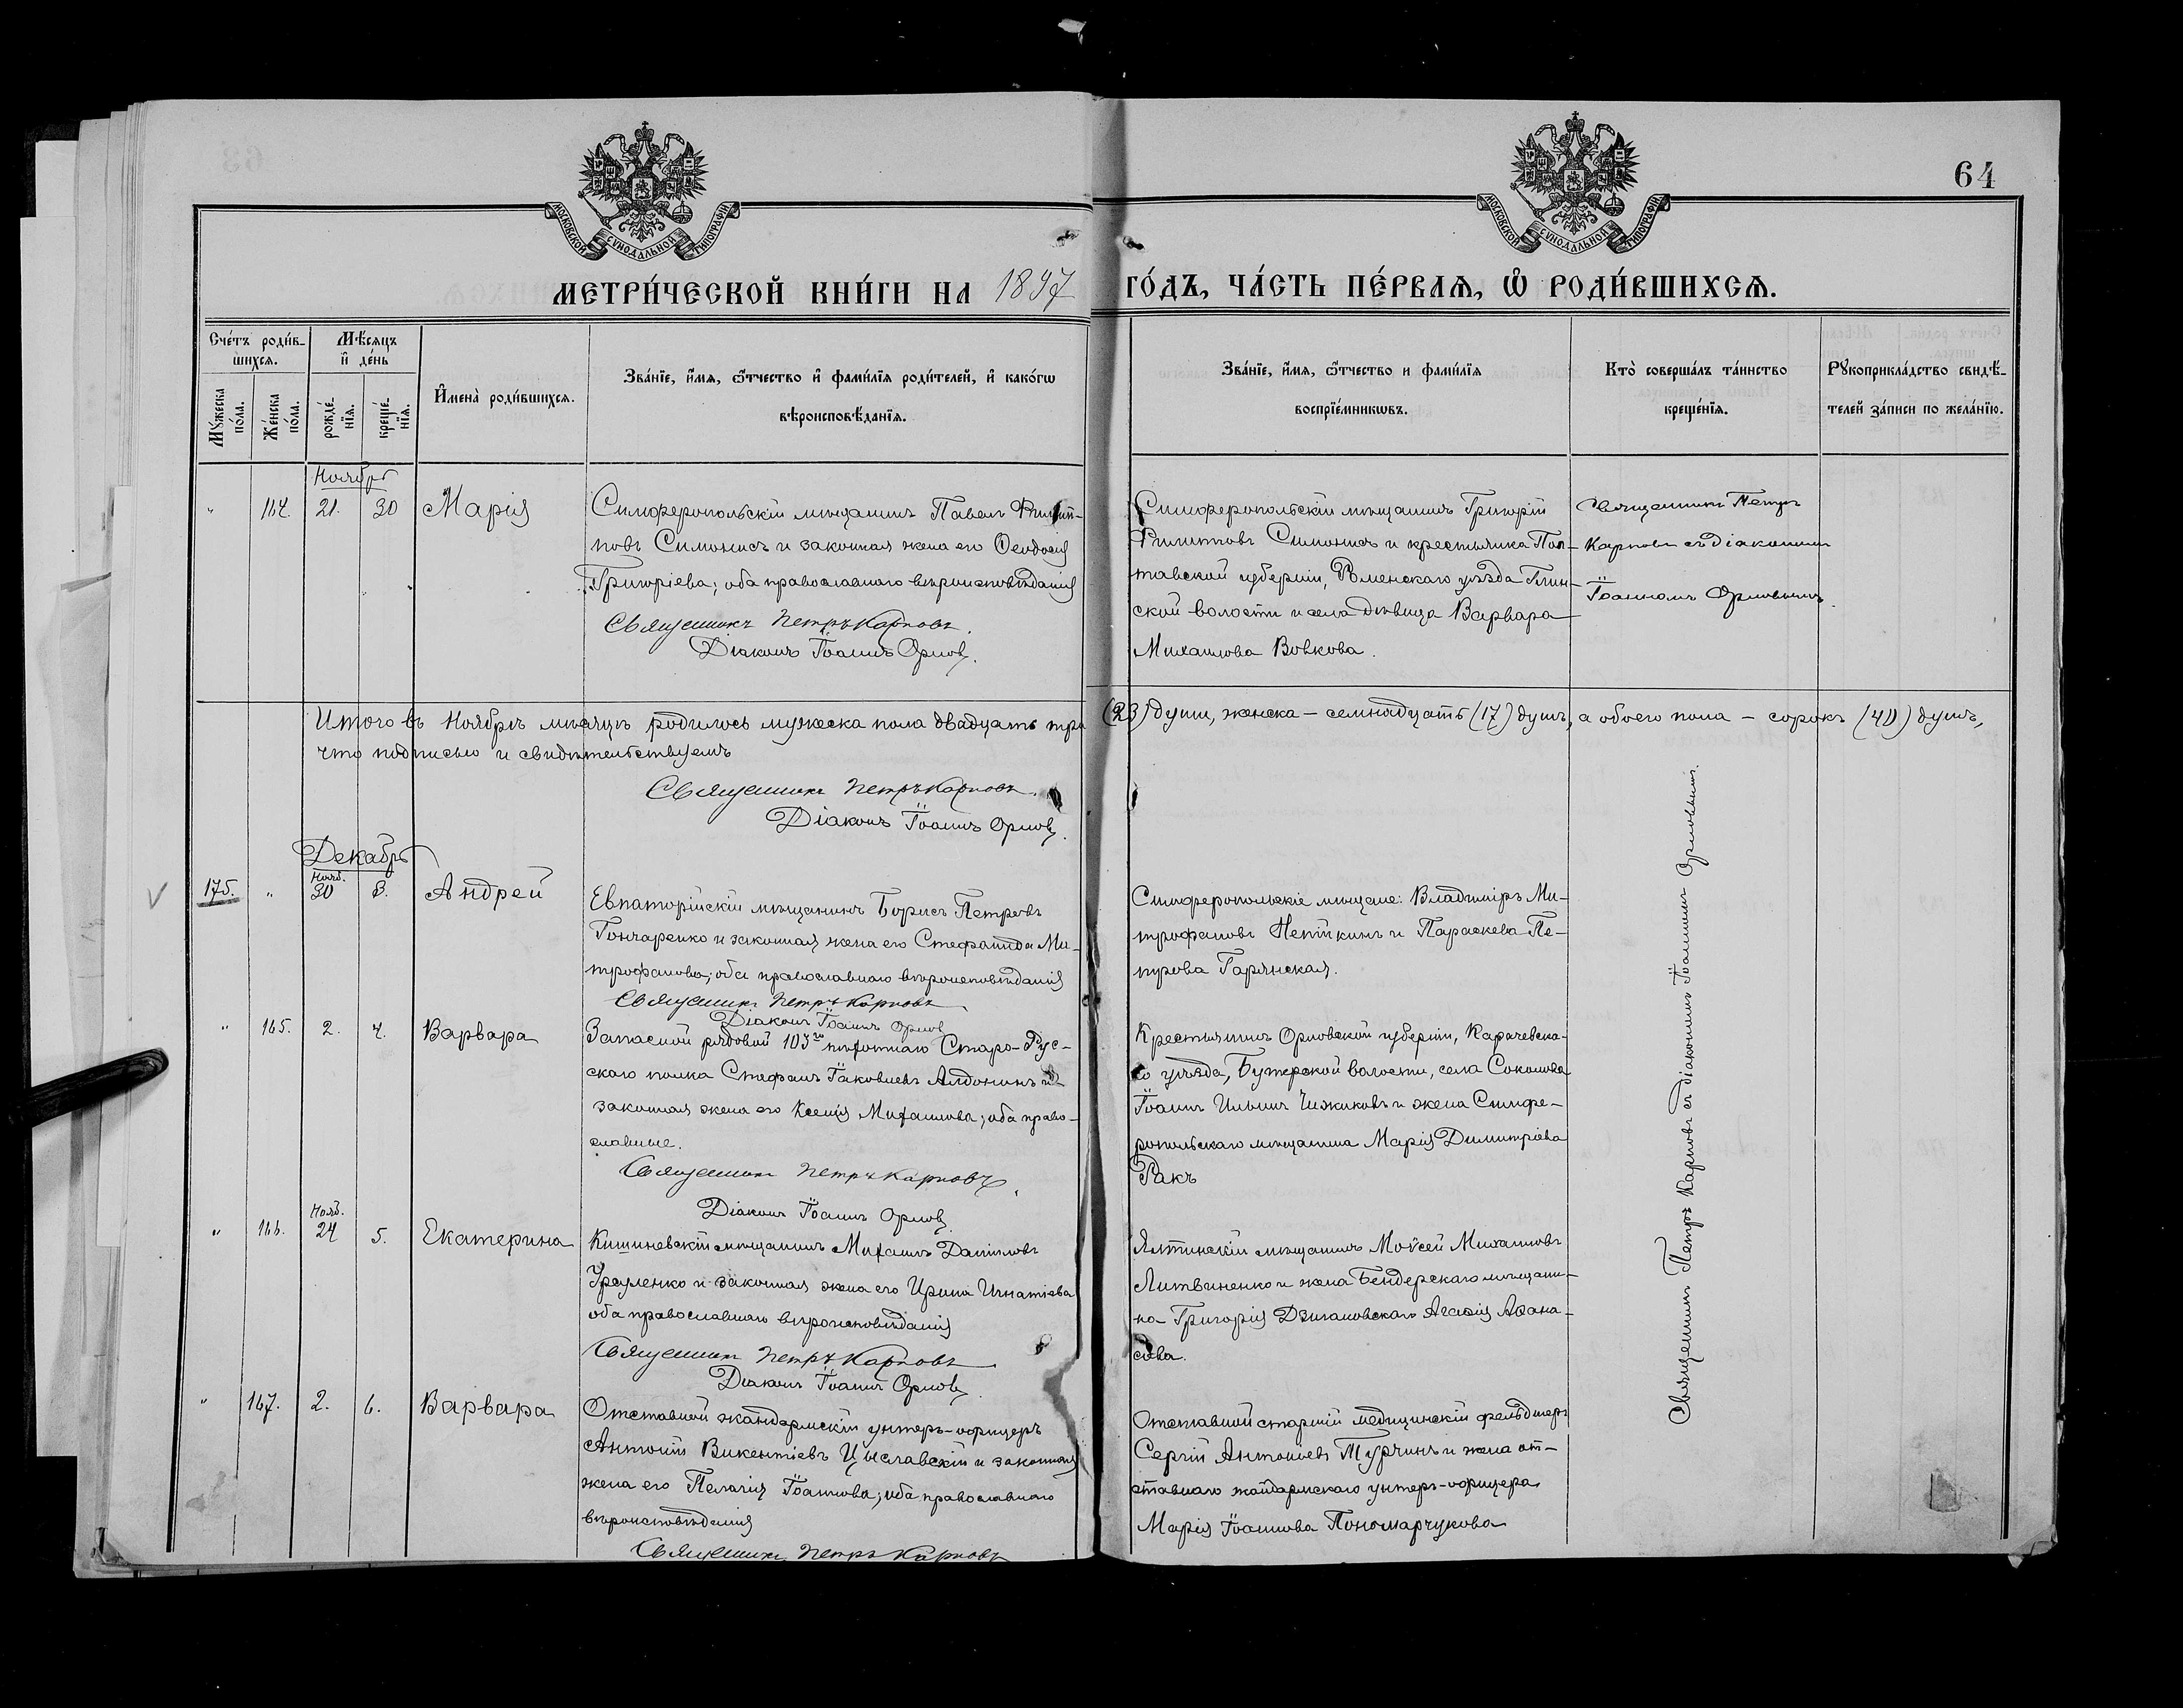 64
МОСКОВСКОЙ СУНОДАЛЬНОЙ ТИПОГРАФІИ
МОСКОВСКОЙ СУНОДАЛЬНОЙ ТИПОГРАФІИ
МЕТРИ́ЧЕСКОЙ КНИ́ГИ НА 1897 ГО́ДЪ, ЧА́СТЬ ПЕ́РВАѦ, Ѡ҆ РОДИ́ВШИХСѦ.
Сче́тъ роди́в-
шихсѧ.
Мѣ́сѧцъ
и҆ де́нь
Мꙋ́жеска
по́ла.
Же́нска
по́ла.
рожде́-
нїѧ.
креще́-
нїѧ.
И҆мена̀ роди́вшихсѧ.
Зва́нїе, и҆́мѧ, ѻ҆́тчество и҆ фами́лїѧ роди́телей, и҆ како́гѡ
вѣроисповѣ́данїѧ.
Зва́нїе, и҆́мѧ, ѻ҆́тчество и фами́лїѧ
воспрїе́мникѡвъ.
Кто̀ соверша́лъ та́инство
креще́нїѧ.
Рꙋкоприкла́дство свидѣ́-
телей за́писи по жела́нїю.
Ноябрь
" 164. 21. 30 Марія
Симферопольскій мѣщанинъ Павелъ Филип-
повъ Симонисъ и законная жена его Ѳеодосія
Григоріева; оба православнаго вѣроисповѣданія
Священникъ Петръ Карповъ.
Діаконъ Іоаннъ Орловъ.
Симферопольскій мѣщанинъ Григорій
Филипповъ Симонисъ и крестьянка Пол-
тавской губерніи, Роменскаго уѣзда Глин-
ской волости и села дѣвица Варвара
Михаилова Вовкова.
Священникъ Петръ
Карповъ съ діакономъ
Іоанномъ Орловымъ.
Итого въ Ноябрѣ мѣсяцѣ родилось мужеска пола двадцать три (23) души, женска – семнадцать (17) душъ, а обоего пола – сорокъ (40) душъ,
что подписью и свидѣтельствуемъ
Священникъ Петръ Карповъ.
Діаконъ Іоаннъ Орловъ.
Декабрь
Нояб.
175. " 30 3. Андрей
Евпаторійскій мѣщанинъ Борисъ Петровъ
Гончаренко и законная жена его Стефанида Ми-
трофанова; оба православнаго вѣроисповѣданія
Священникъ Петръ Карповъ
Діаконъ Іоаннъ Орловъ
Симферопольскіе мѣщане: Владиміръ Ми-
трофановъ и Параскева Пе-
трова Гарянская.
" 165. 2. 4. Варвара
Запасной рядовой 103го пѣхотнаго Старо-Рус-
скаго полка Стефанъ Іаковлевъ Алдонинъ и
законная жена его Ксенія Михаилова; оба право-
славные.
Священникъ Петръ Карповъ.
Діаконъ Іоаннъ Орловъ.
Крестьянинъ Орловской губерніи, Карачевска-
го уѣзда, Бутерской волости, села Соколова
Іоаннъ Ильинъ Чижиковъ и жена Симфе-
ропольскаго мѣщанина Марія Димитріева
Ракъ
Нояб.
" 166. 24 5. Екатерина
Кишиневскій мѣщанинъ Михаилъ Даніиловъ
и законная жена его Ирина Игнатіева
оба православнаго вѣроисповѣданія
Священникъ Петръ Карповъ.
Діаконъ Іоаннъ Орловъ.
Ялтинскій мѣщанинъ Моѵсей Михаиловъ
Литвиненко и жена Бендерскаго мѣщани-
на Григорія Дзигановскаго Агаѳія Аѳана-
сіева.
" 167. 2. 6. Варвара
Отставной жандармскій унтеръ-офицеръ
Антоній Викентіевъ Цыславскій и законная
жена его Пелагія Іоаннова; оба православнаго
вѣроисповѣданія
Священникъ Петръ Карповъ
Отставной старшій медицинскій фельдшеръ
Сергій Антоніевъ Турчинъ и жена от-
ставнаго жандармскаго унтеръ-офицера
Марія Іоаннова Пономарчукова
Священникъ Петръ Карповъ съ діакономъ Іоанномъ Орловымъ.